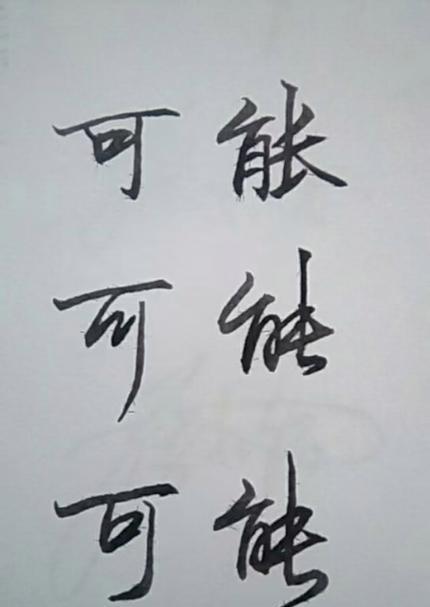 可能
可能
可能